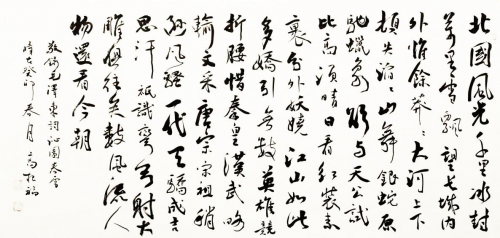 北國風光千里冰封
萬里雪飄望長城内
外惟餘莽〻大河上下
頓失滔〻山舞銀蛇原
馳蠟象欲与天公試
比高須晴日看紅裝素
裹分外妖嬈江山如此
多嬌引無數英雄競
折腰惜秦皇漢武略
輸文采唐宗宋祖稍
遜風騷一代天驕成吉
思汗祇識彎弓射大
雕俱往矣數風流人
物還看今朝
敬錄毛澤東詞沁園春雪
時在癸卯春月高